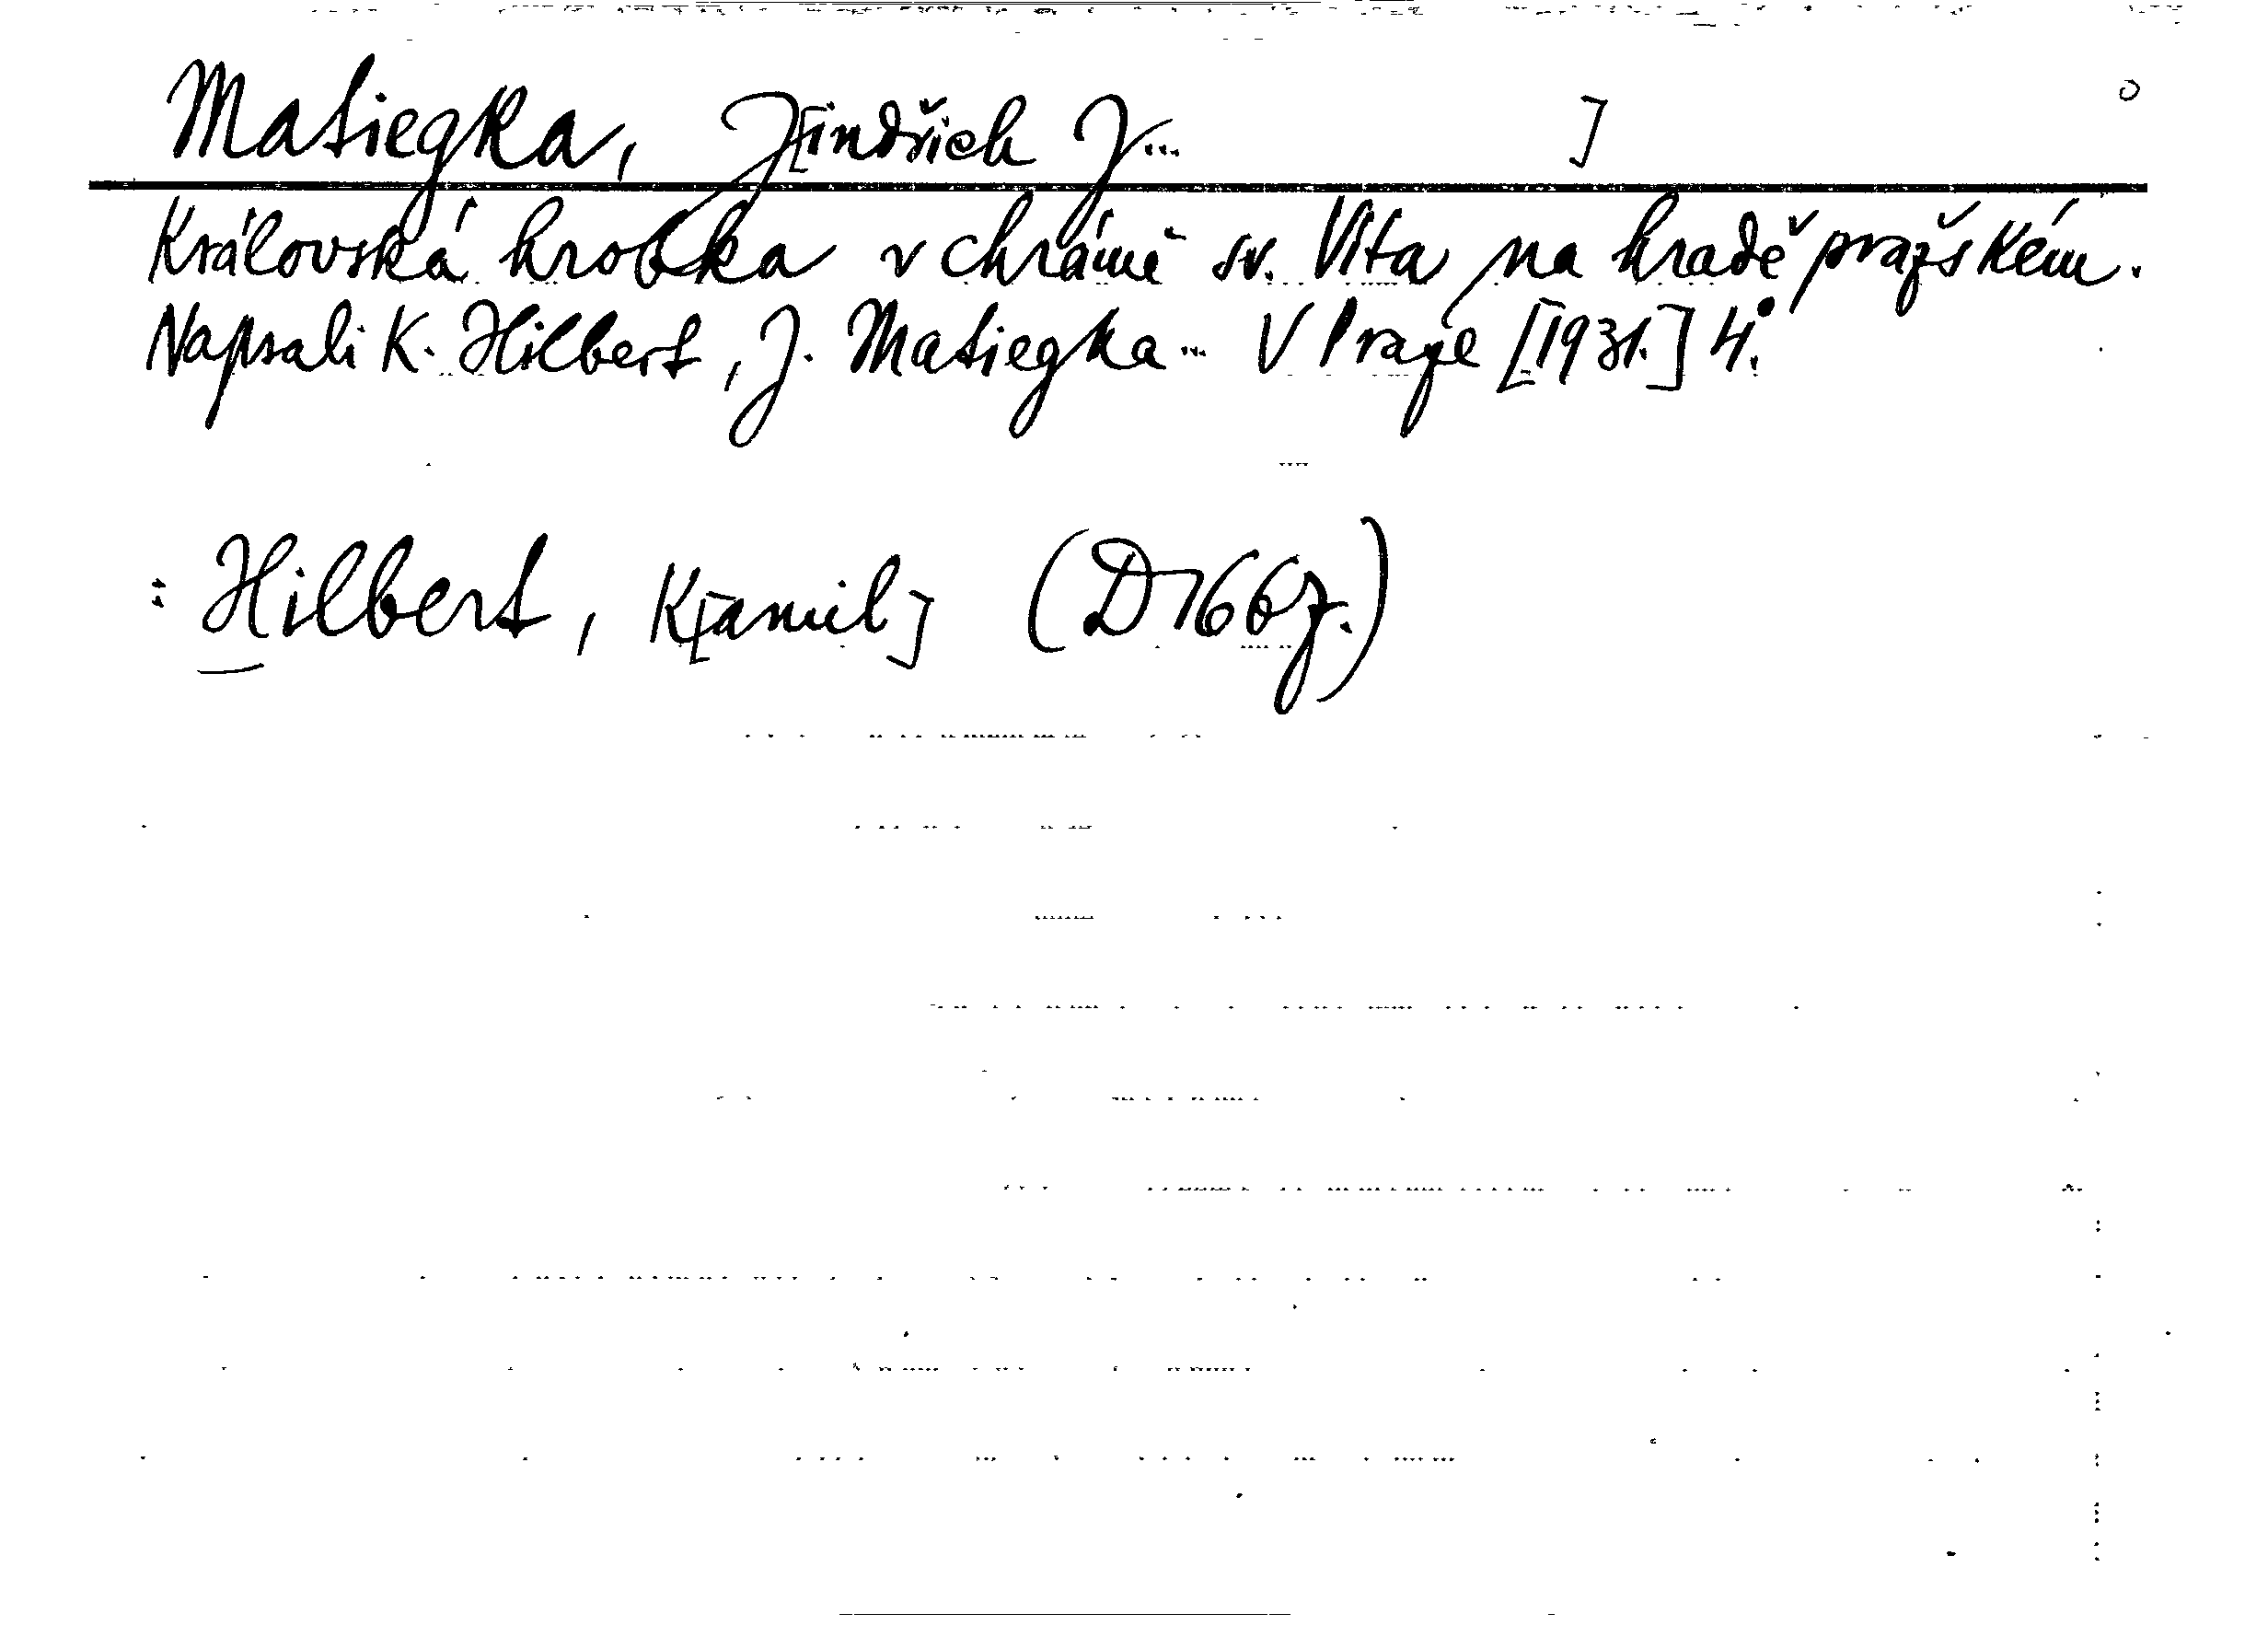 Matiegka, J[indřich J... ]
Královská hrobka v chrámě sv. Víta na hradě pražském.
Napsali K. Hilbert, J. Matiegka... V Praze [1931.] 4°.
: Hilbert, K[amil] (D166z.)